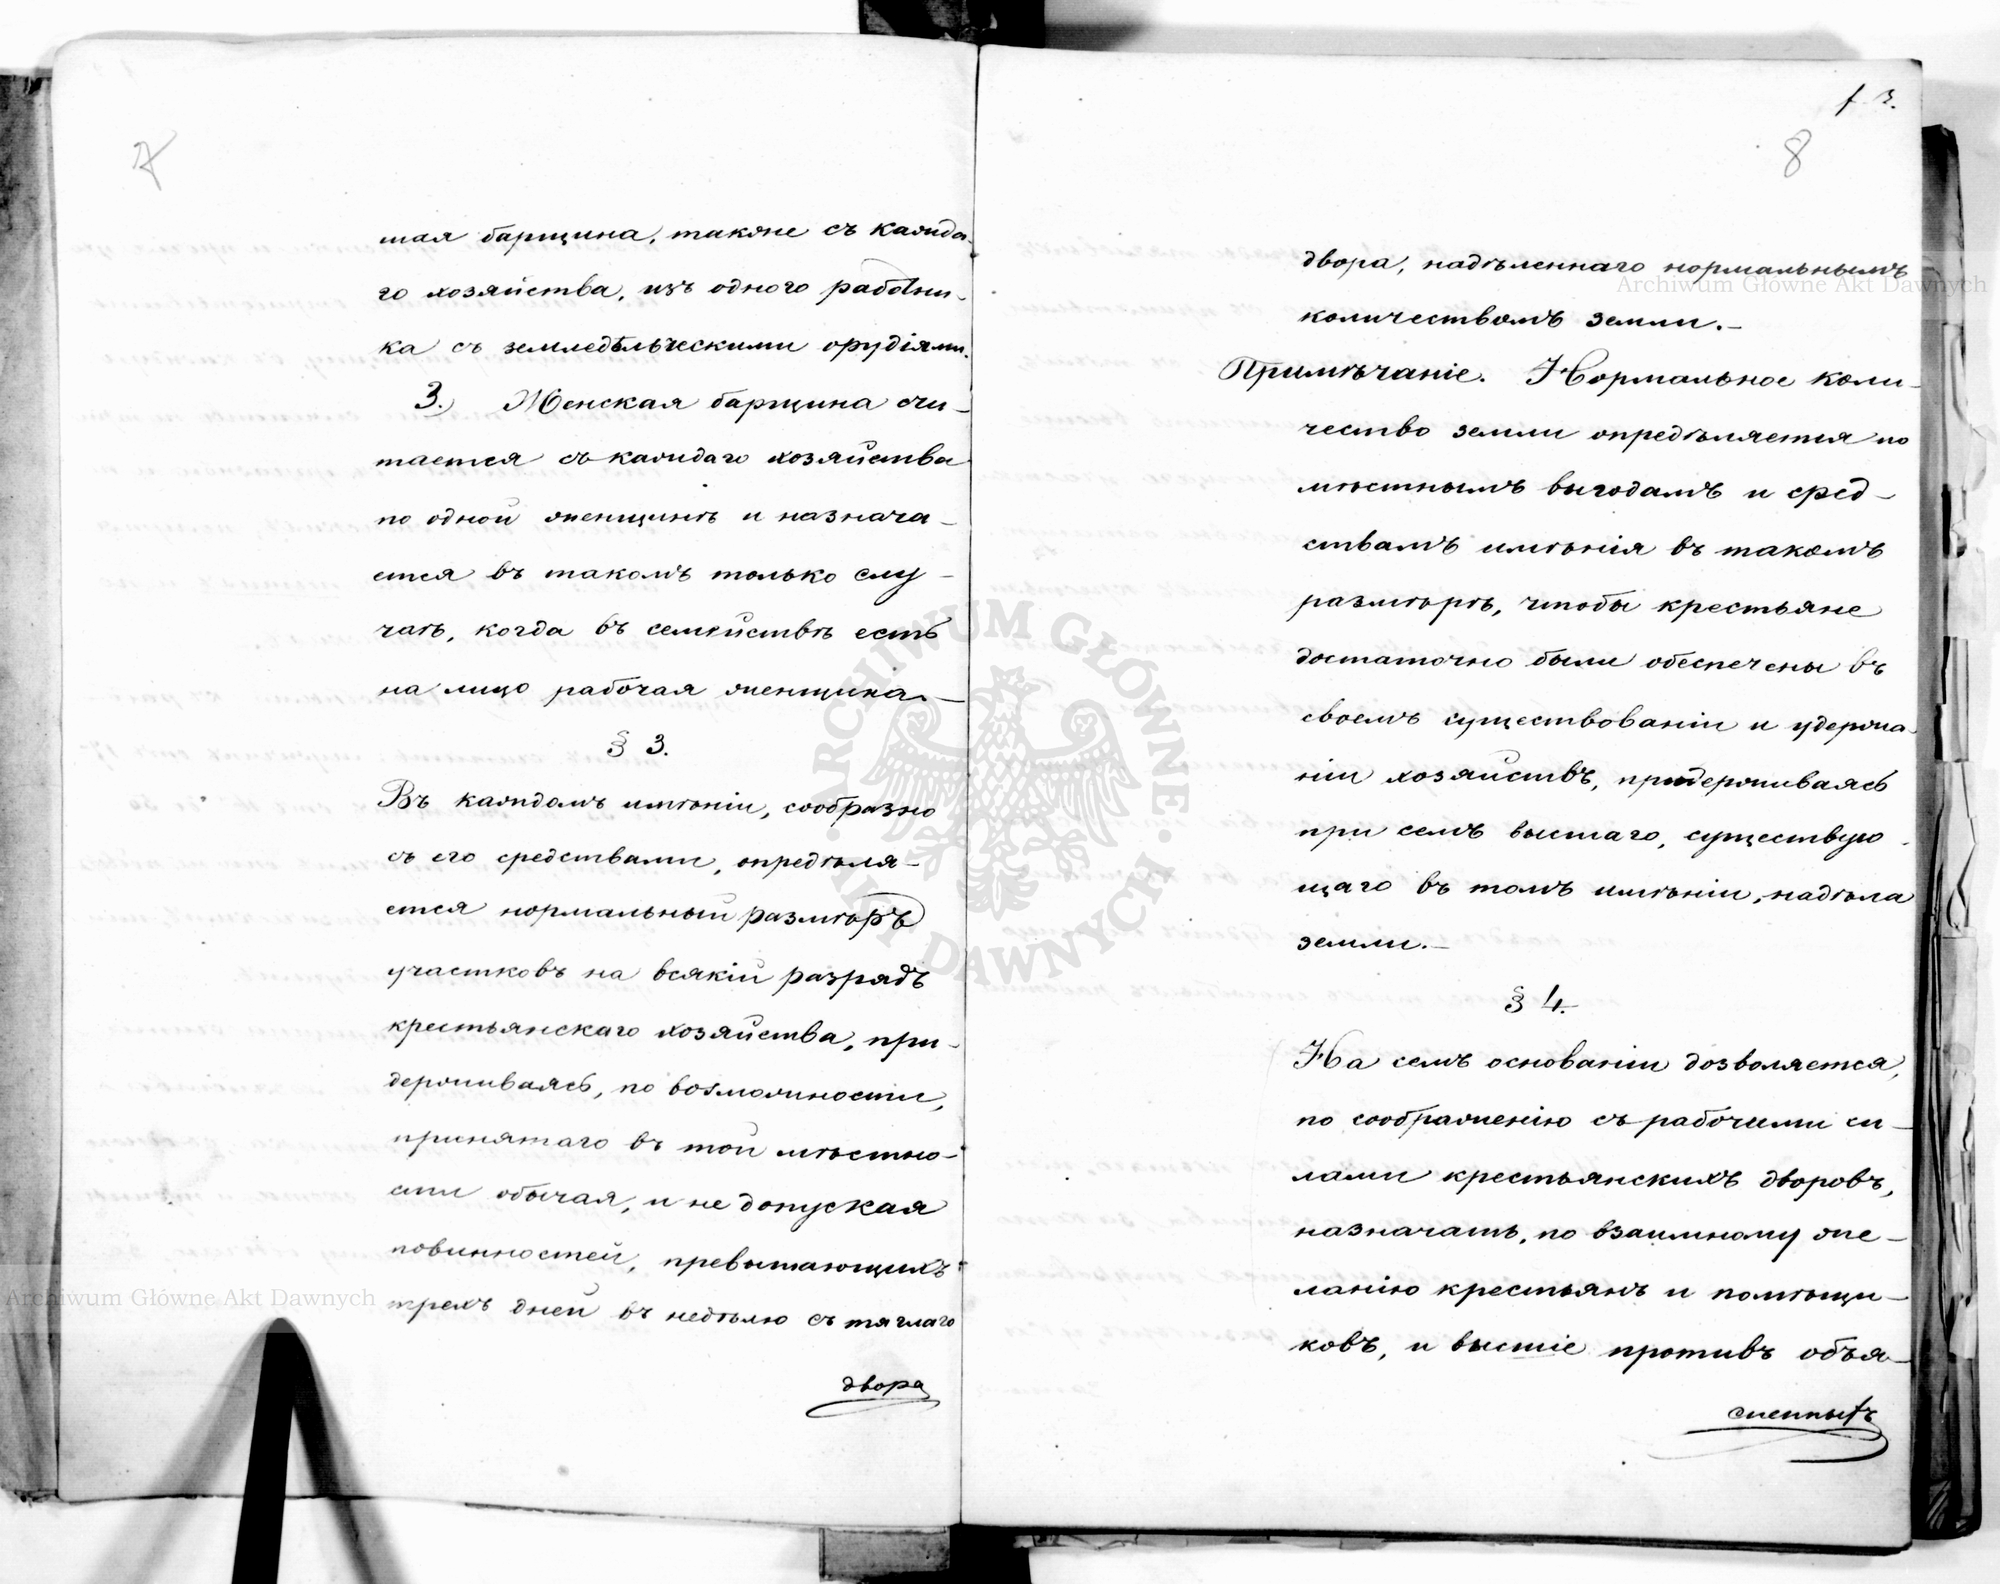 7
шая барщина, также съ каждо-
го хозяйства, изъ одного работни-
ка съ земледѣльческими орудіями.
3.) Женская барщина счи-
тается съ каждаго хозяйства
по одной женщинѣ и назнача-
ется въ такомъ только слу-
чаѣ, когда въ семействѣ есть
на лицо рабочая женщина.—
§ 3.
Въ каждомъ имѣніи, сообразно
съ его средствами, опредѣля-
ется нормальный размѣръ
участковъ на всякій разрядъ
крестьянскаго хозяйства, при-
держиваясь, по возможности,
принятаго въ той мѣстно-
сти обычая, и не допуская
повинностей, превышающихъ
трехъ дней въ недѣлю съ тяглаго
двора
8
двора, надѣленнаго нормальнымъ
количествомъ земли.—
Примѣчаніе. Нормальное коли-
чество земли опредѣляется по
мѣстнымъ выгодамъ и сред-
ствамъ имѣнія въ такомъ
размѣрѣ, чтобы крестьяне
достаточно были обеспечены въ
своемъ существованіи и удержа-
ніи хозяйствъ, придерживаясь
при семъ высшаго, существую-
щаго въ томъ имѣніи, надѣла
земли.—
§ 4.
На семъ основаніи дозволяется,
по соображенію съ рабочими си-
лами крестьянскихъ дворовъ,
назначать, по взаимному же-
ланію крестьянъ и помѣщи-
ковъ, и высшіе противъ объя-
сненныхъ
Archiwum Główne Akt Dawnych
Archiwum Główne Akt Dawnych
ARCHIWUM GŁÓWNE AKT DAWNYCH